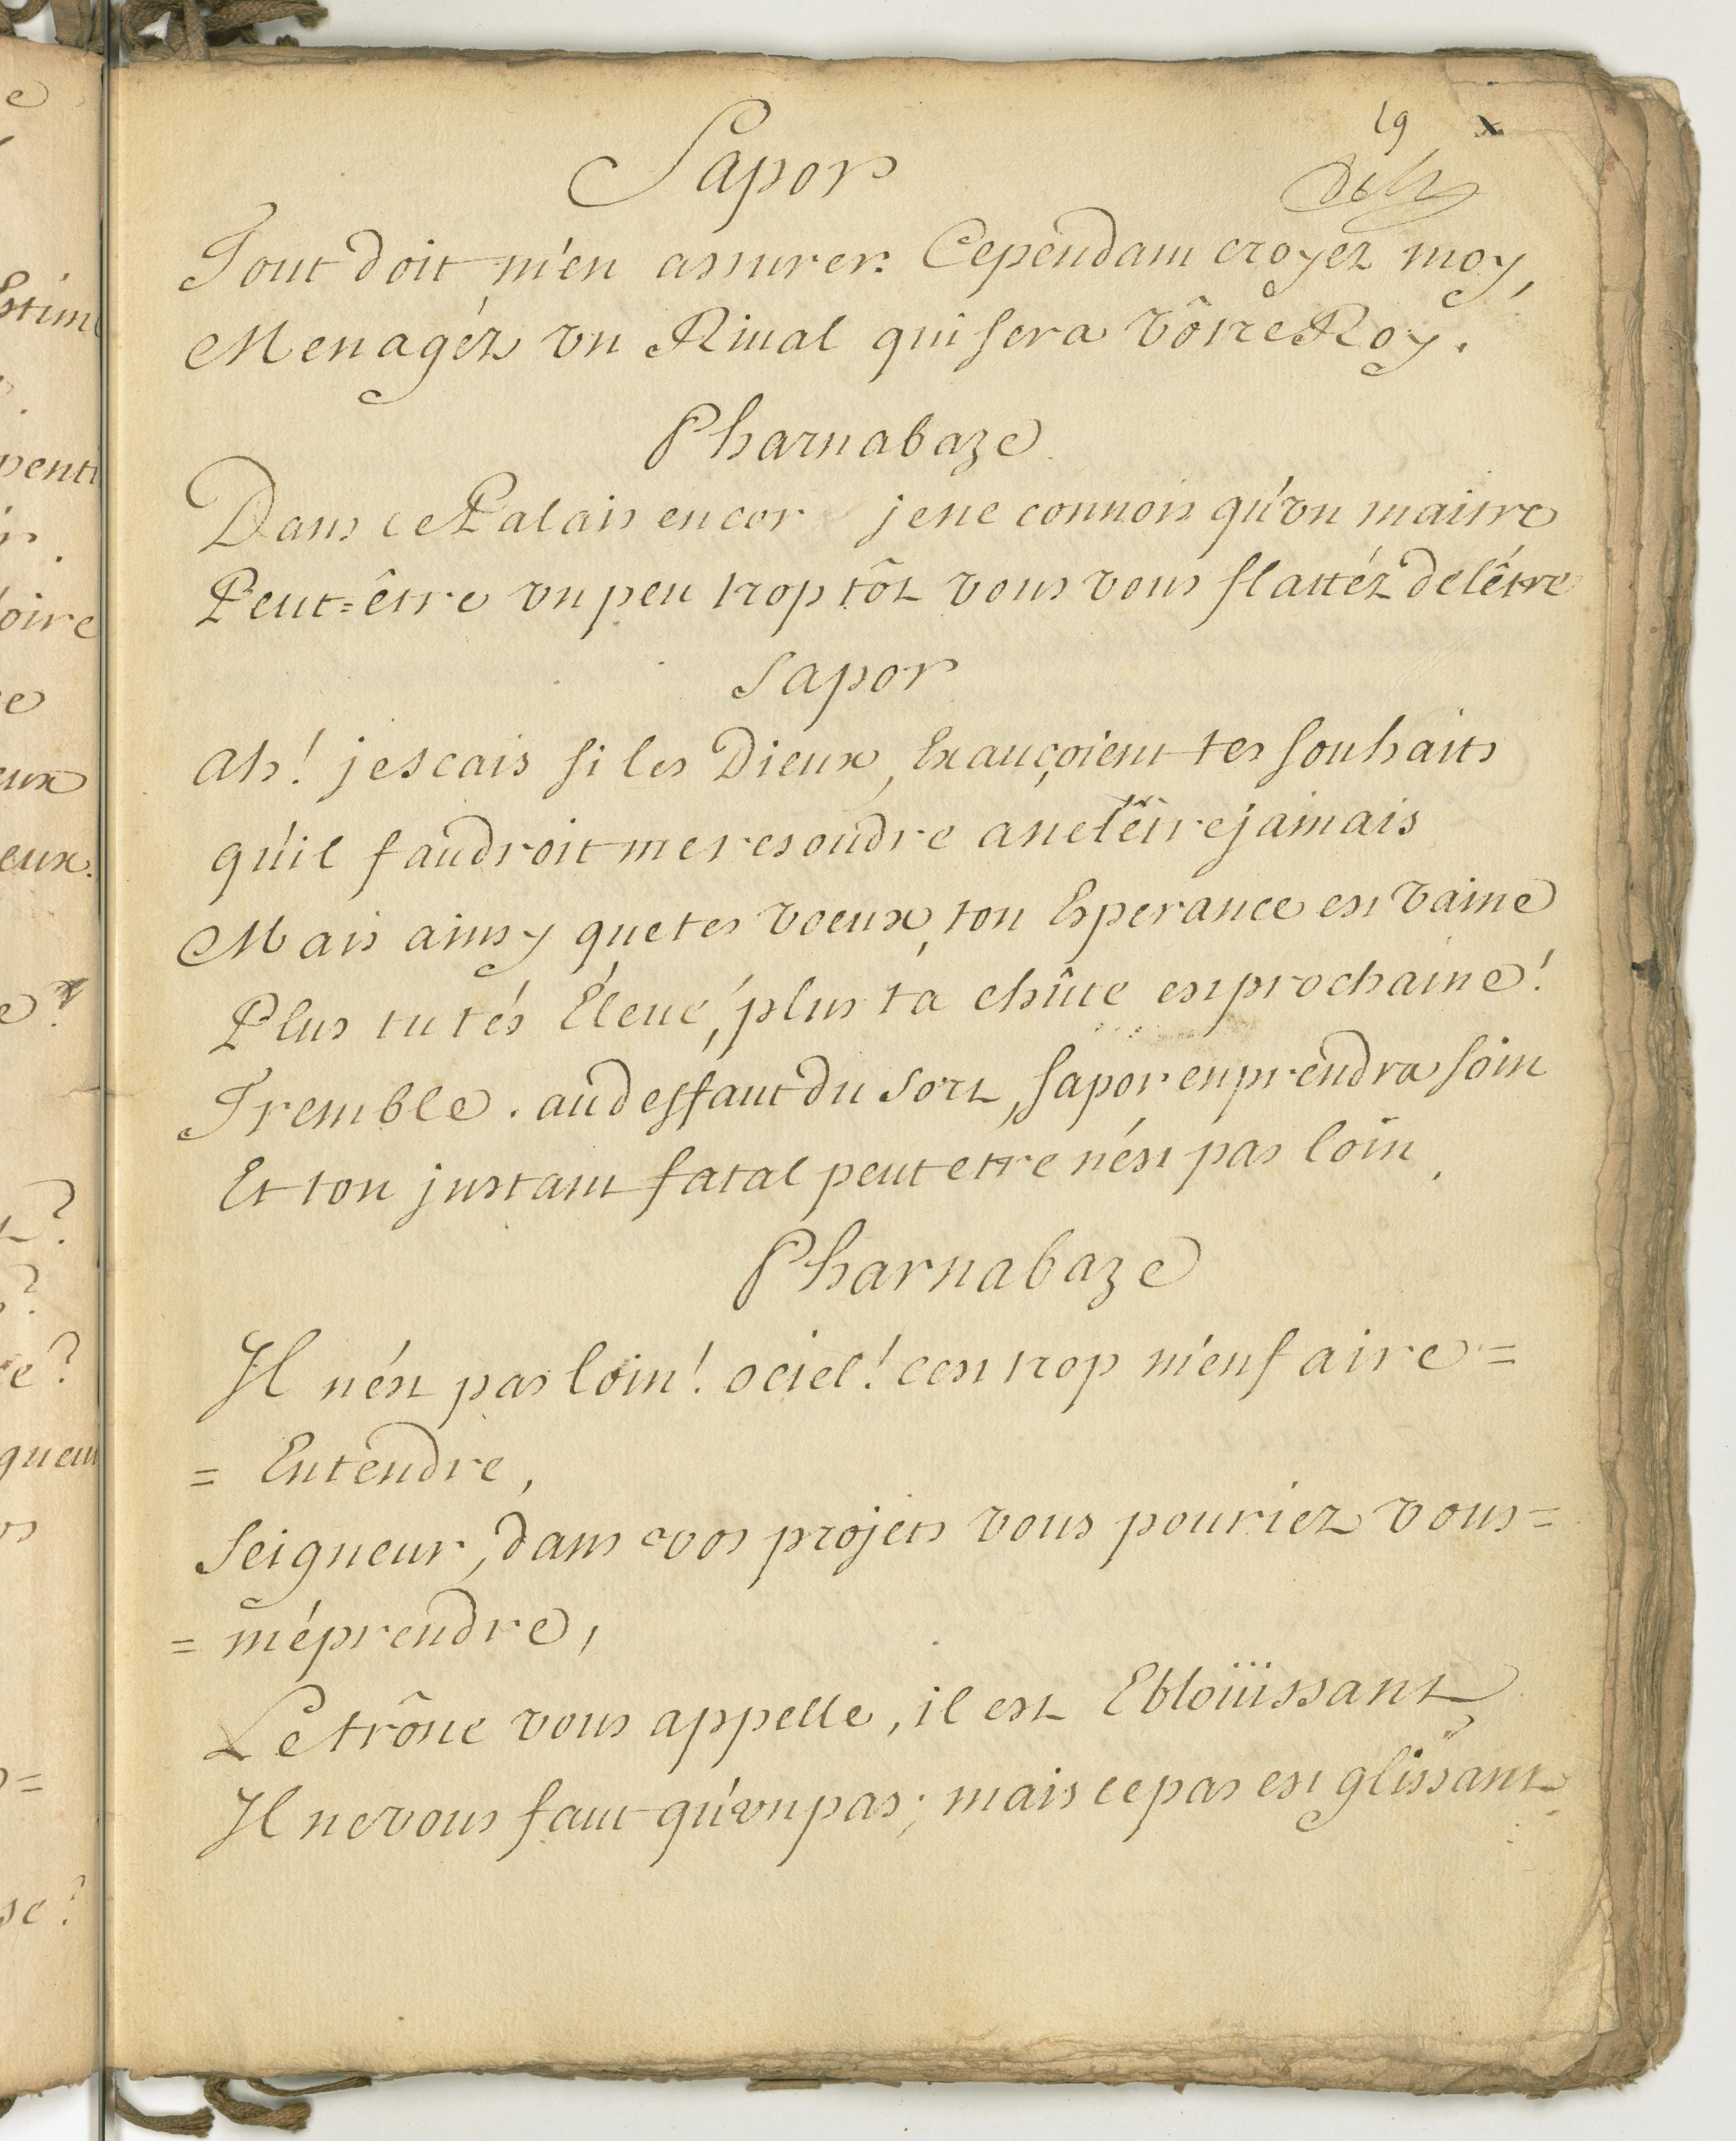 19 x
Sapor
Tout doit m'en assurer. Cependant croyez moy,
Menagéz vn Riual qui sera vôtre Roy.
Pharnabaze
Dans ce Palais encor je ne connois qu'vn maitre
Peut=être vn peu trop tôt vous vous flattéz de l'être
Sapor
Ah! je scais si les Dieux, Exauçoient tes souhaits
qu'il faudroit me resoudre a ne l'être jamais
Mais ainsy que tes voeux, ton Esperance est vaine
Plus tu t'és Éleué, plus ta chûte est prochaine!
Tremble. au deffaut du sort, sapor en prendra soin
Et ton jnstant fatal peut etre n'ést pas loin,
Pharnabaze
Il n'ést pas loin! o ciel! cest trop m'en faire=
= Entendre,
Seigneur, dans vos projets vous pouriez vous=
= méprendre,
Le trône vous appelle, il est Ebloüissant
Il ne vous faut qu'vn pas; mais ce pas est glissant